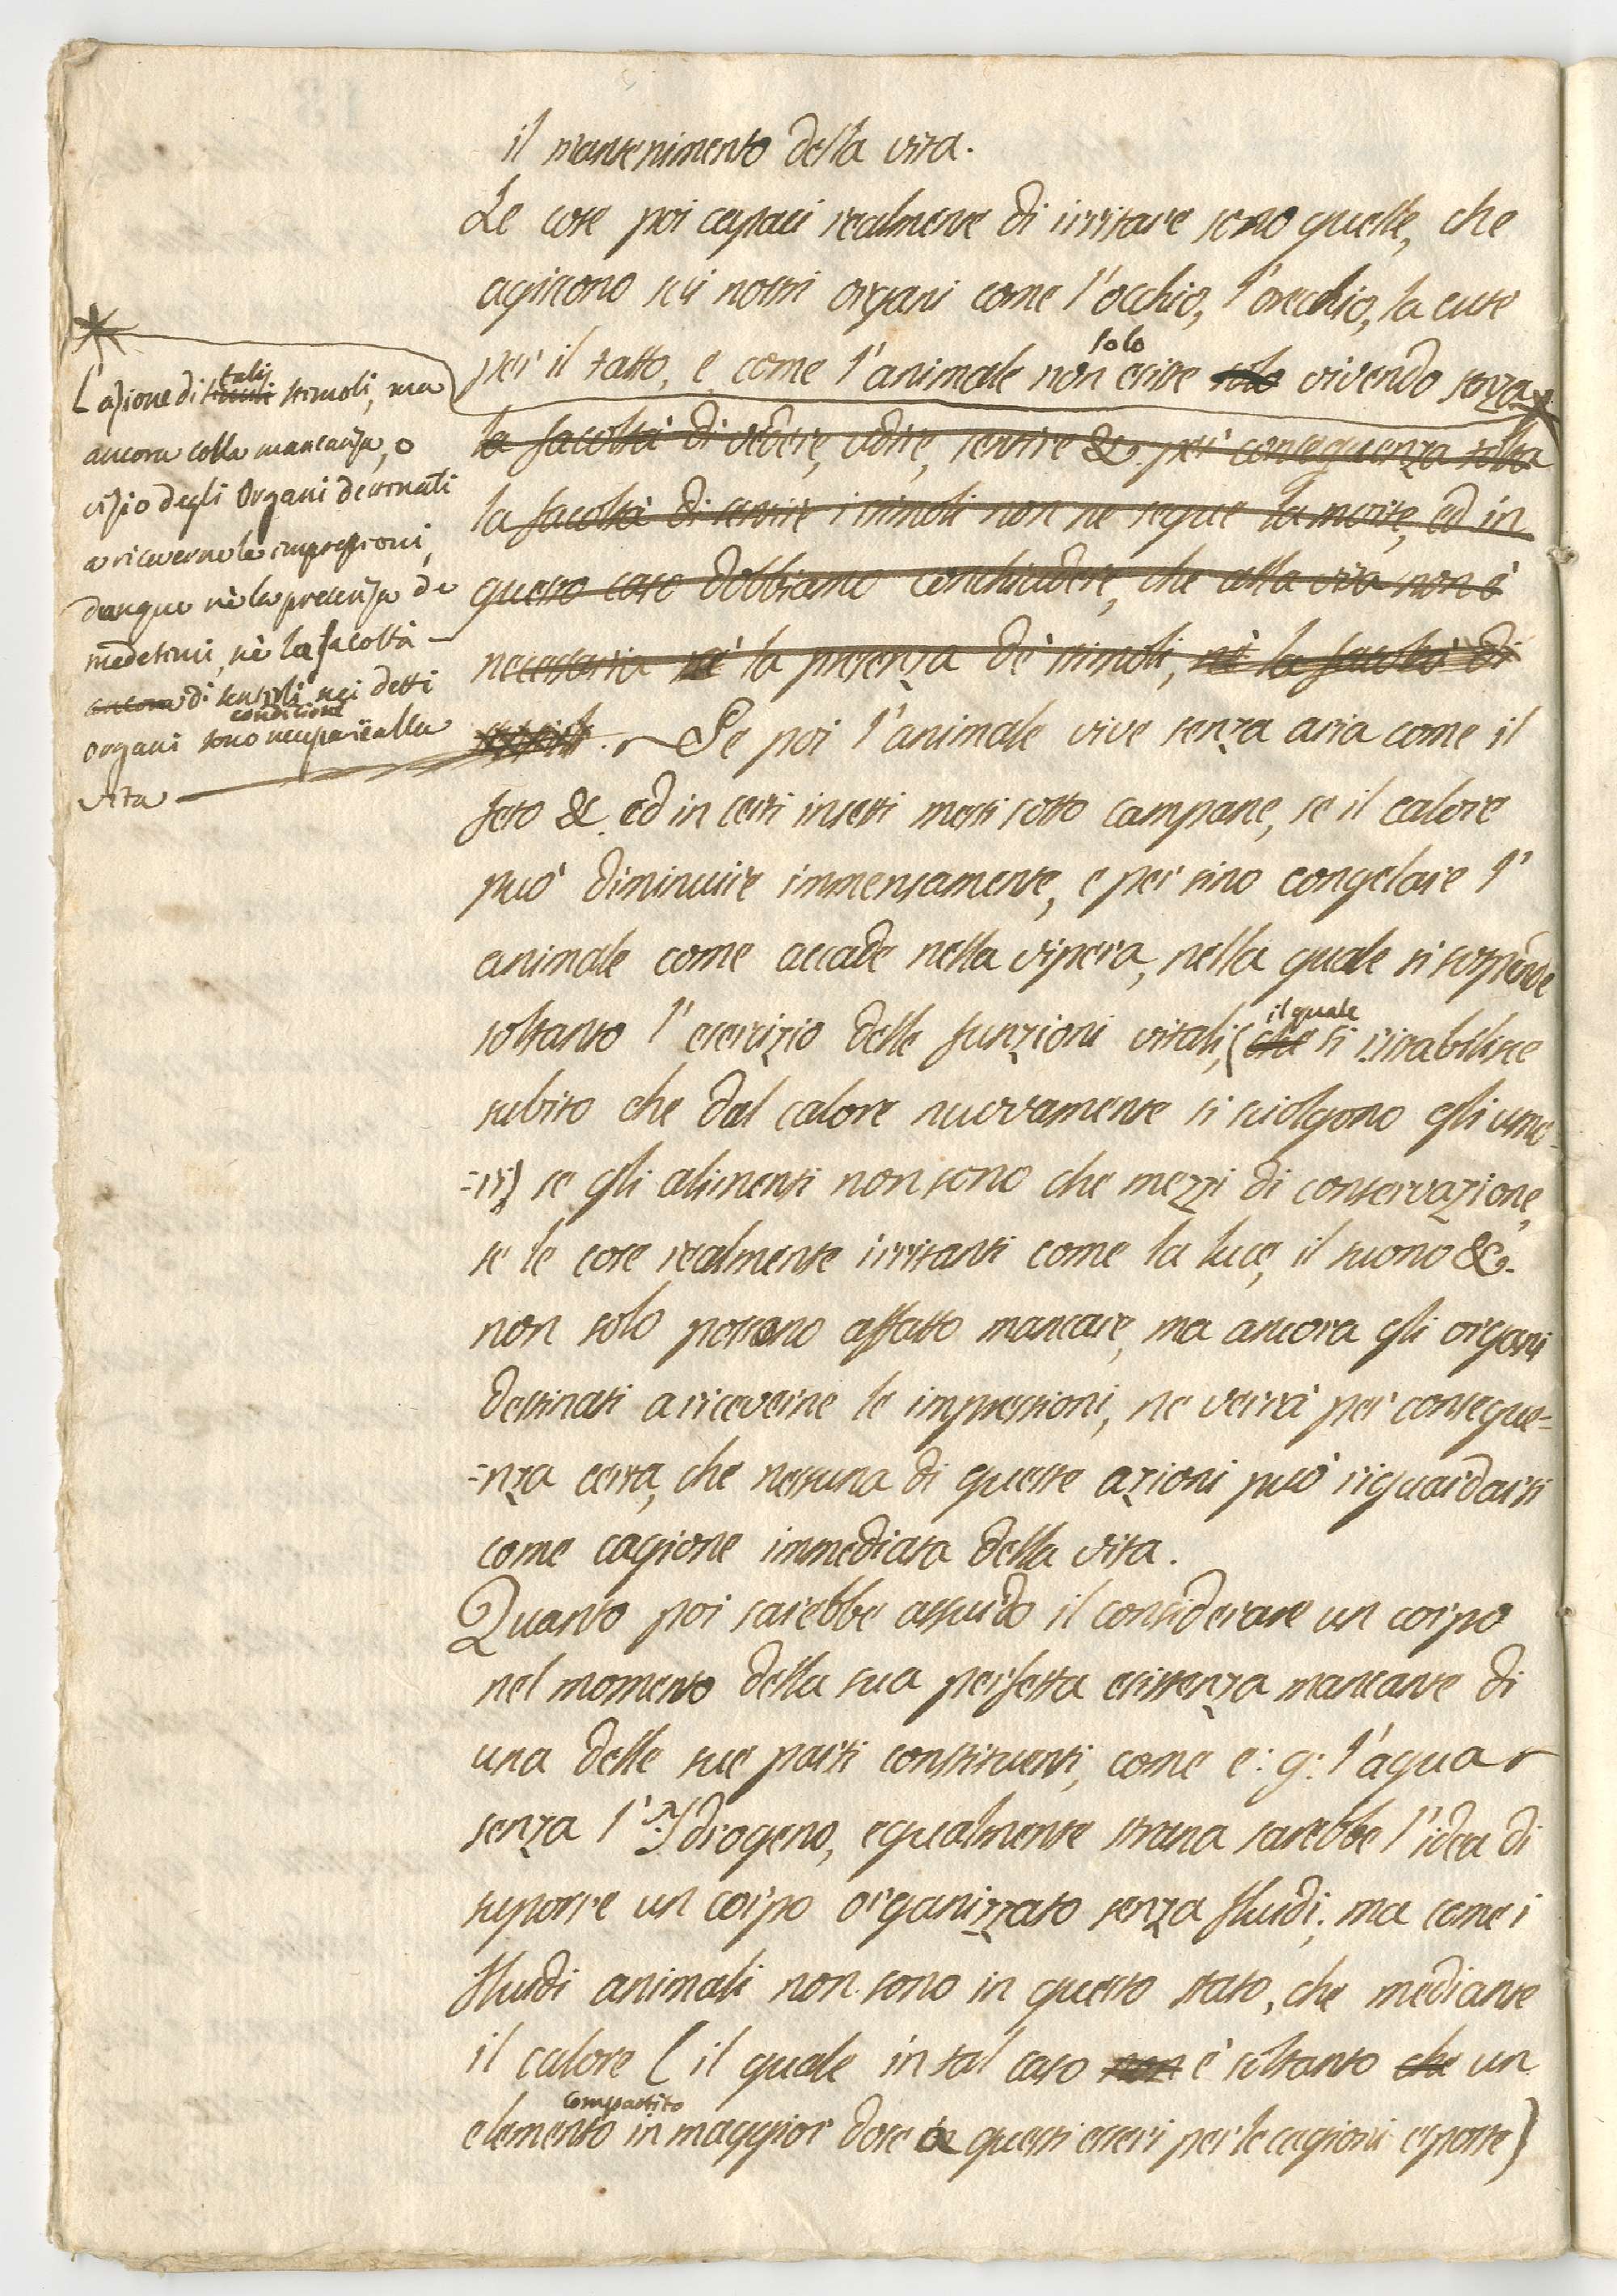 il mantenimento della vita.
Le cose poi capaci realmente di irritare sono quelle, che
agiscono sui nostri organi come l'occhio, l'orecchio, la cute
per il tatto, e come l'animale non solo esiste solo vivendo senza
la facoltà di vedere, udire, sentire &. per conseguenza tolta
la facoltà di sentire i stimoli non ne segue la morte, ed in
questo caso dobbiamo conchiudere, che alla vita non è
necessaria nè la presenza de' stimoli, nè la facoltà di
Se poi l'animale vive senza aria come il
feto &. ed in certi insetti messi sotto campane, se il calore
può diminuire immensamente, e per sino congelare l'
animale come accade nella vipera, nella quale si sospende
soltanto l'esercizio delle funzioni vitali, (che il quale si ristabilisce
subito che dal calore nuovamente si sciolgono gli umo-
-ri) se gli alimenti non sono che mezzi di conservazione,
se le cose realmente irritanti come la luce, il suono &.
non solo possono affatto mancare, ma ancora gli organi
destinati a riceverne le impressioni, ne verrà per consegue=
=nza certa, che nessuna di queste azioni può riguardarsi
come cagione immediata della vita.
Quanto poi sarebbe assurdo il considerare un corpo
nel momento della sua perfetta esistenza mancante di
una delle sue parti constituenti, come e: g: l'aqua
senza l'Ydrogeno, egualmente strana sarebbe l'idea di
suporre un corpo organizzato senza fluidi; ma come i
fluidi animali non sono in questo stato, che mediante
il calore (il quale in tal caso non è soltanto che un
elemento compartito in maggior dose a questi esseri per le cagioni esposte)
L'azione di simili tali stimoli, ma
ancora colla mancanza, o
vizio degli Organi destinati
a riceverne le impressioni,
dunque nè la presenza de
medesimi, nè la facoltà
ancora di sentirli nei detti
organi sono condizioni necessarie alla
vita